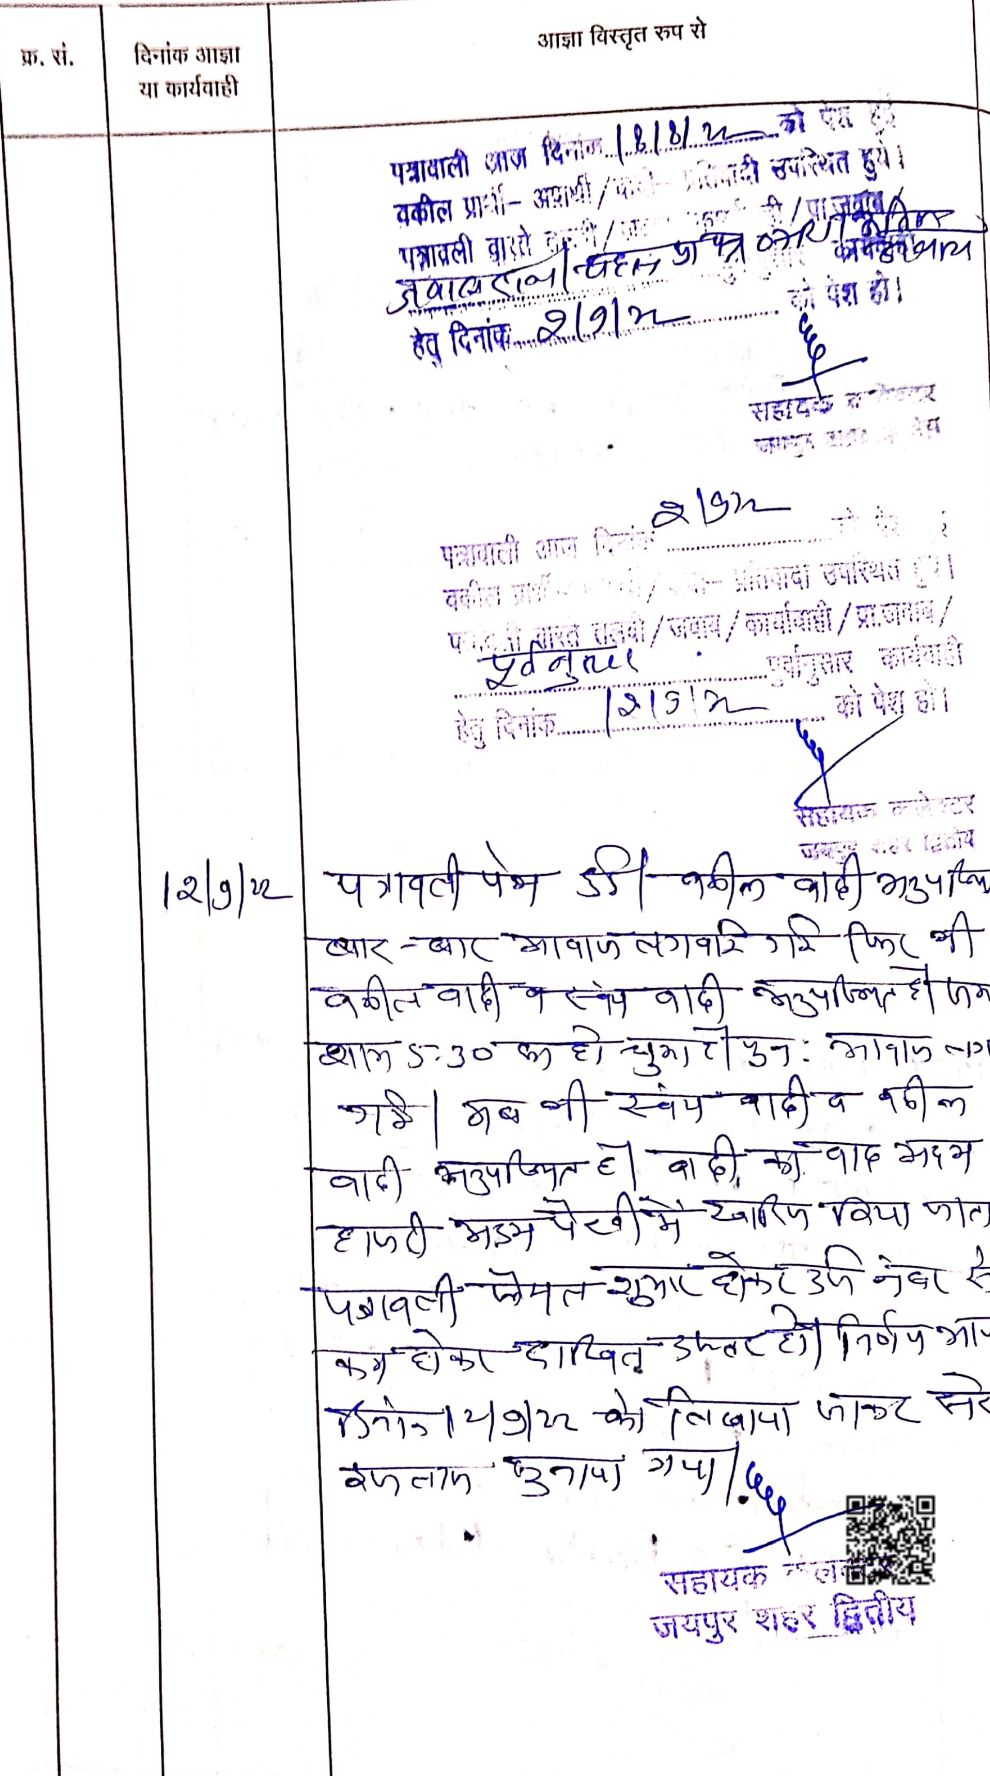 क्र. सं.
दिनांक आज्ञा
या कार्यवाही
आज्ञा विस्तृत रुप से
पत्रावाली आज दिनांक 18/8/22 को पेश हुई
वकील प्रार्थी- अप्रार्थी / प्रतिवादी उपस्थित हुये।
पत्रावली वास्ते / प्रा.जवाब /
हेतु दिनांक 2/9/22 को पेश हो।
सहायक कलेक्टर
जयपुर
2/9/22
पत्रावाली आज दिनांक
वकील प्रार्थी प्रतिवादी उपस्थित हुये।
वास्ते तलबी / जवाब / कार्यावाही / प्रा.जवाब /
पूर्वानुसार पूर्वानुसार कार्यवाही
हेतु दिनांक 12/9/22 को पेश हो।
सहायक कलेक्टर
जयपुर शहर द्वितीय
12/9/22 पत्रावली पेश हुई। वकील वादी अनुपस्थित
बार-बार आवाज लगवाई गई फिर भी
वकील वादी व स्वंय वादी अनुपस्थित है।
शाम 5:30 का हो चुका है। पुन: आवाज
गई। अब भी स्वंय वादी व वकील
वादी अनुपस्थित है। वादी का वाद अदम
हाजरी अदम पैरवी में खारिज किया जाता
पत्रावली फैसल शुमार होकर नंबर से
कम होकर दाखिल दफ्तर हो। निर्णय आज
दिनांक 12/9/22 को लिखाया जाकर सरे
इजलास सुनाया गया।
सहायक कलेक्टर
जयपुर शहर द्वितीय